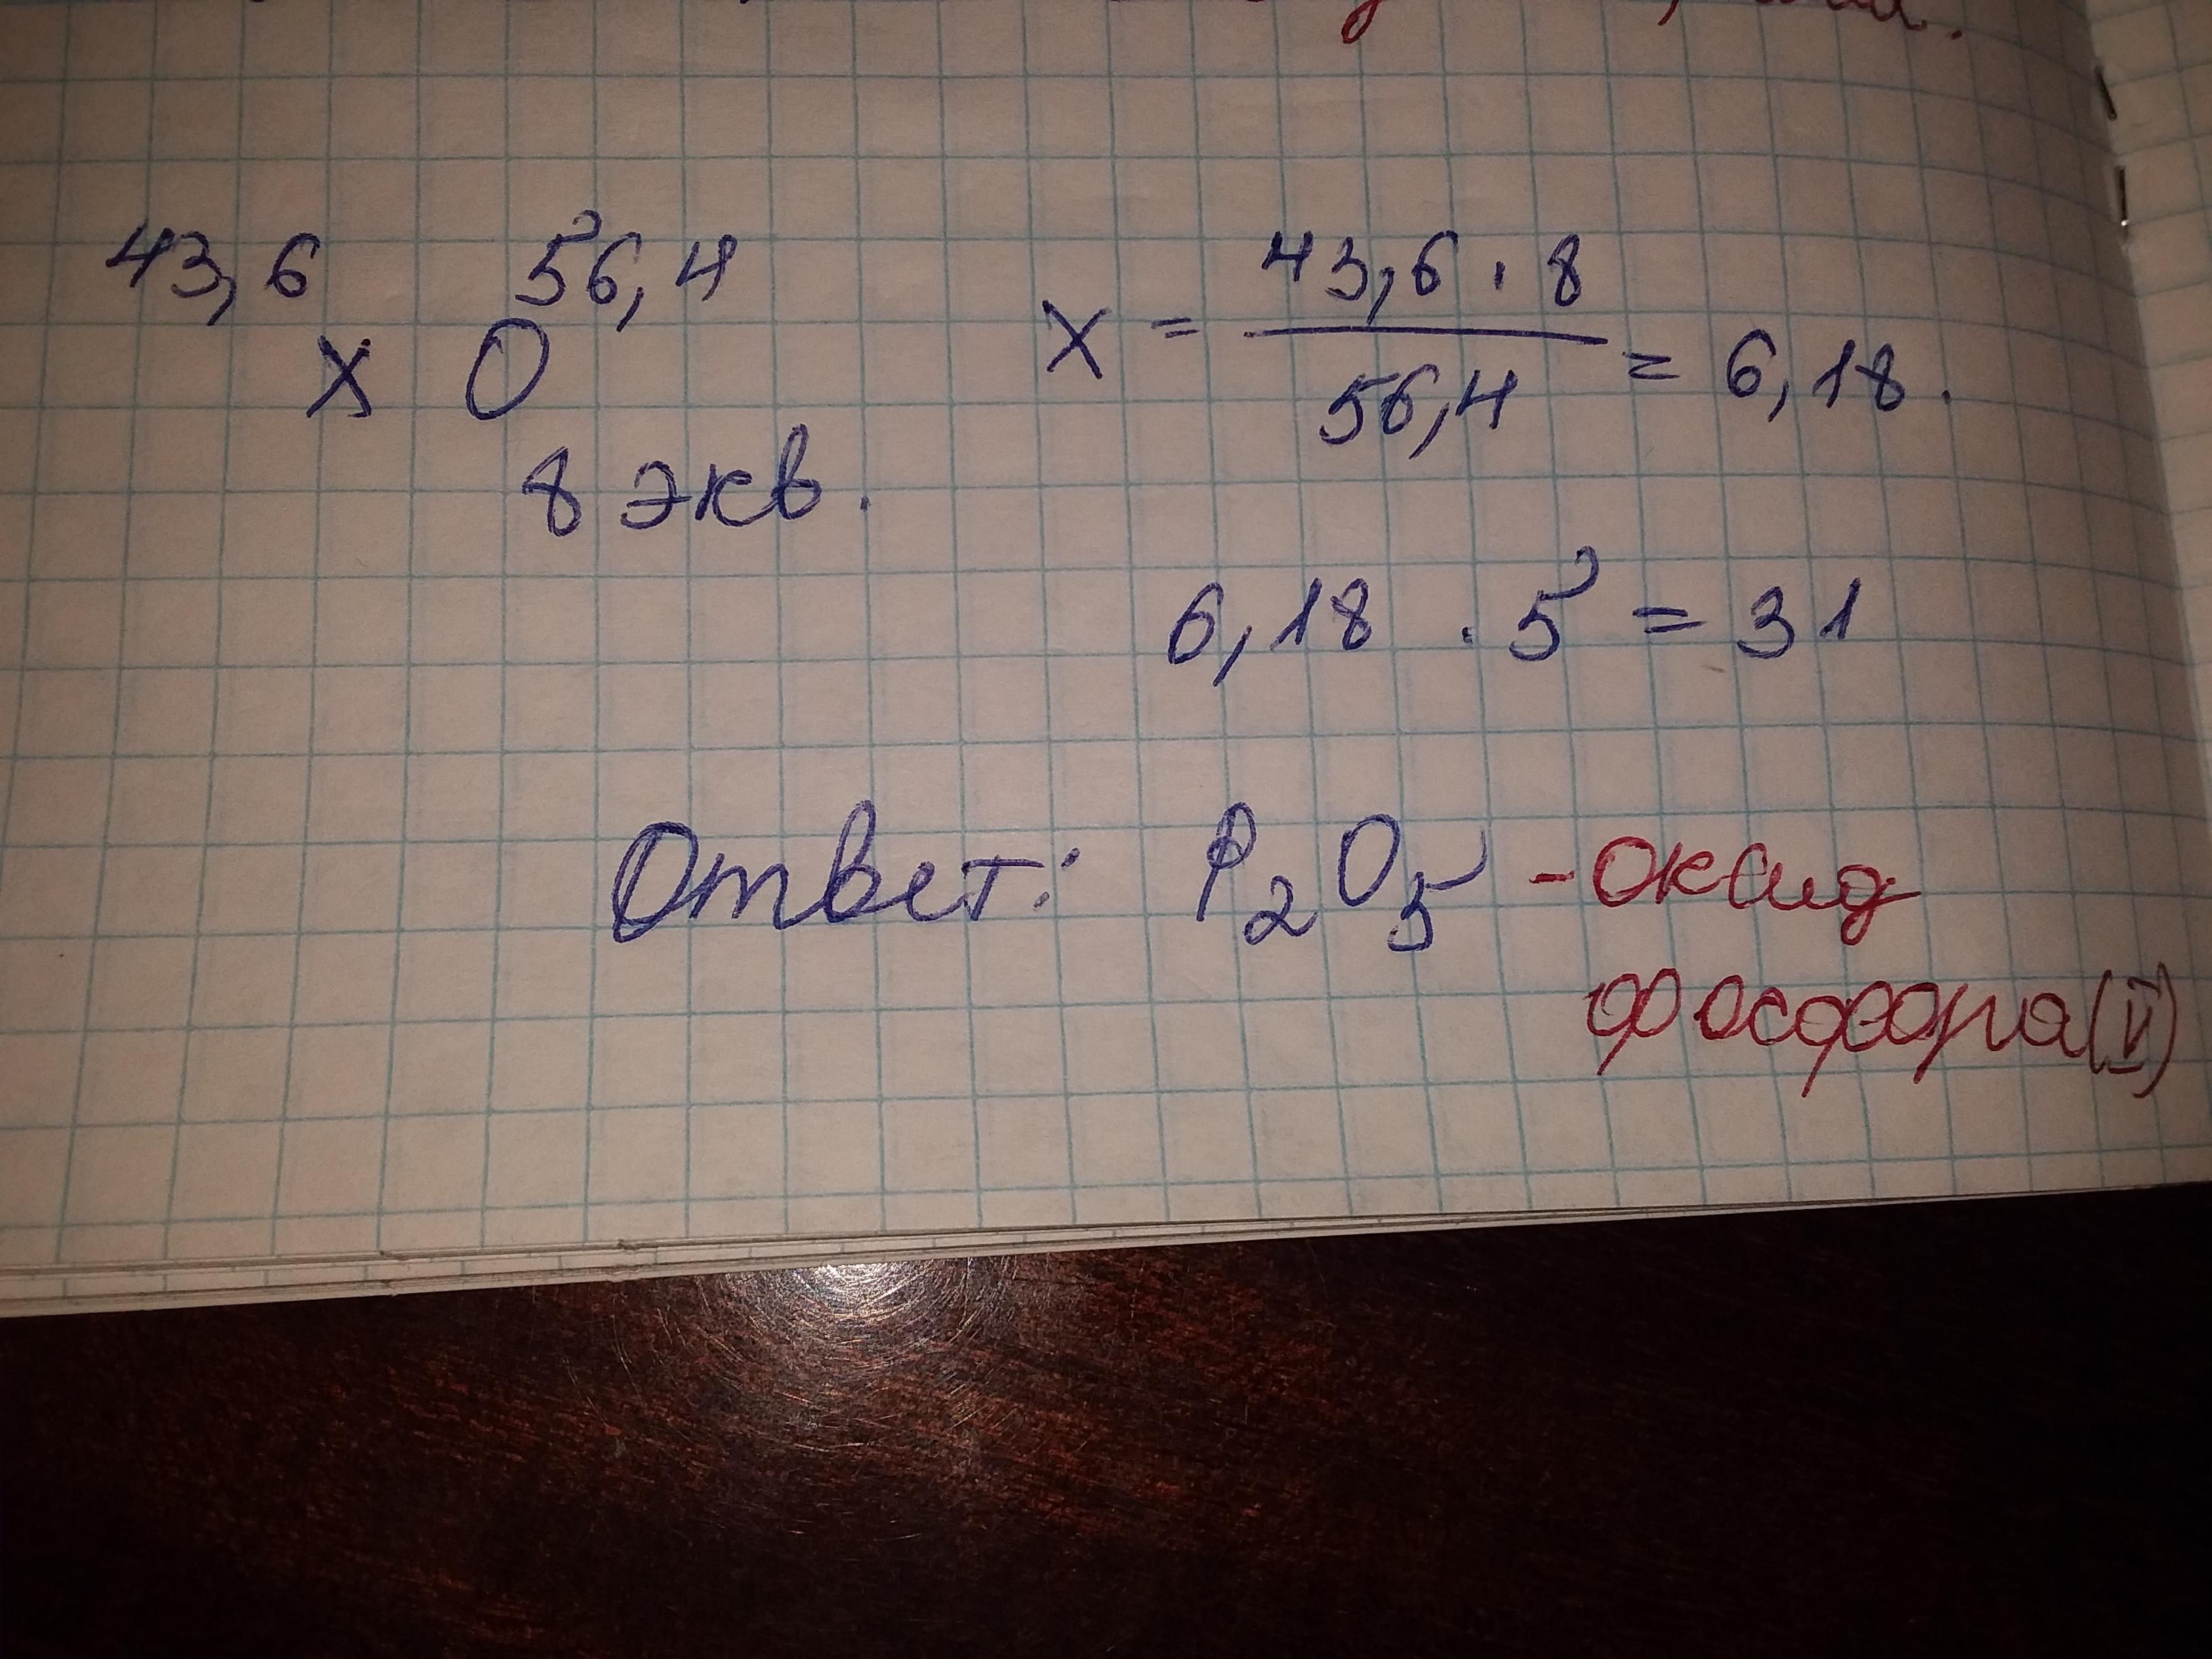 43,6 56,4
X O
8 экв.
X = 43,6 · 8 / 56,4 = 6,18.
6,18 · 5 = 31
Ответ: P₂O₅ - оксид
фосфора (V)